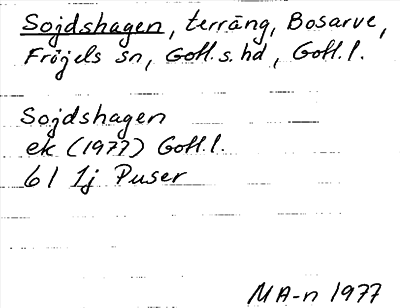 Sojdshagen, terräng, Bosarve,
Fröjels sn, Gotl. s. hd, Gotl. l.
Sojdshagen
ek (1977) Gotl. l.
6 I 1j Puser
MA-n 1977